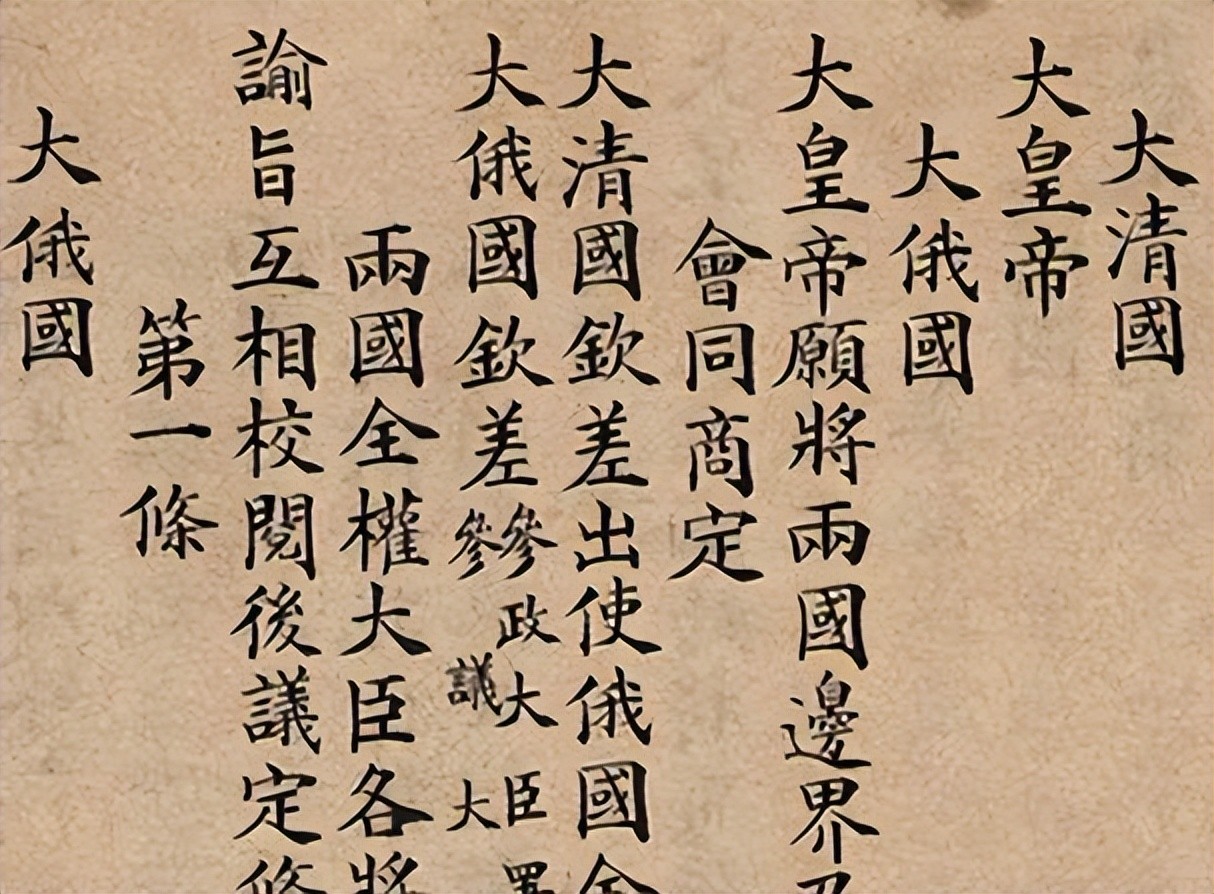 大清國
大皇帝
大俄國
大皇帝願將兩國邊界
會同商定
大清國欽差出使俄國全
大俄國欽差
參政大臣署
參議大
兩國全權大臣各將
諭旨互相校閱後議定條
第一條
大俄國